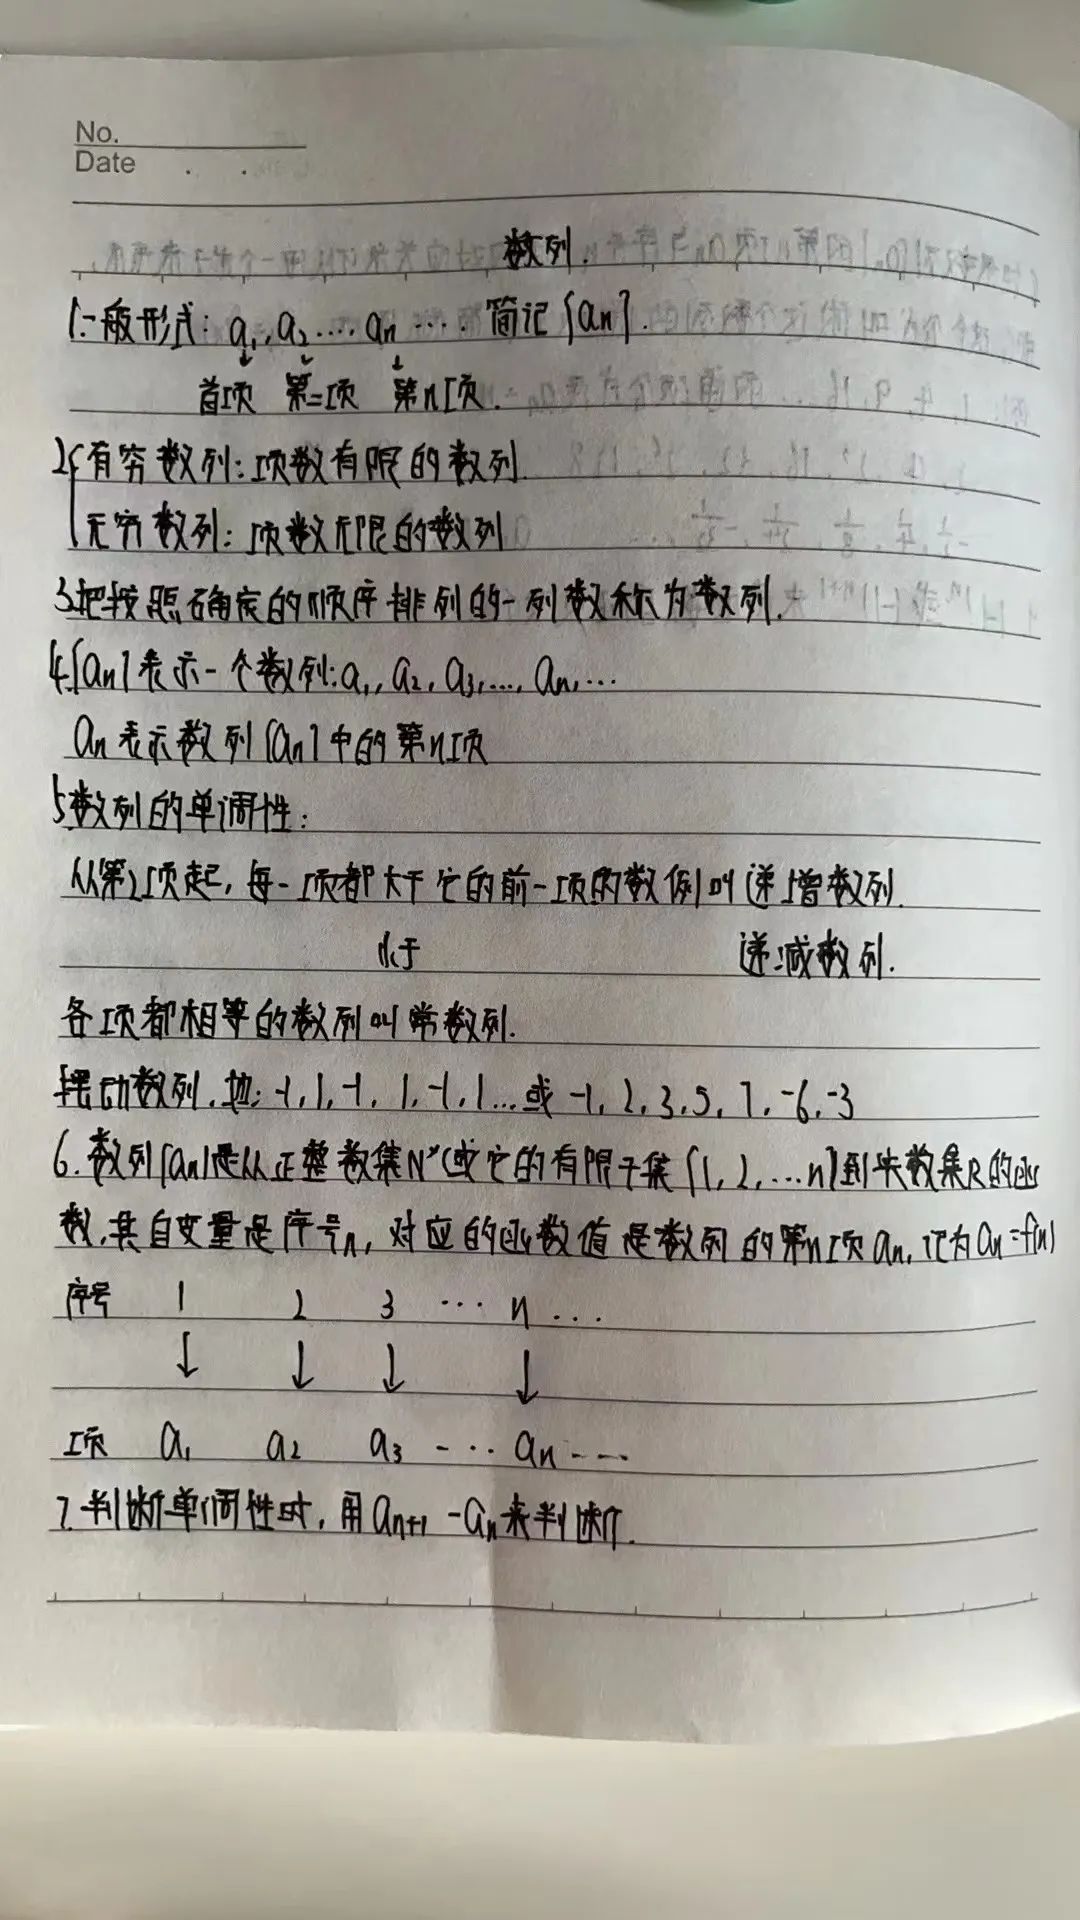 No.
Date . .
数列.
1.一般形式: a₁, a₂ .... aₙ .... 简记{aₙ}.
首项 第二项 第n项.
2{有穷数列:项数有限的数列.
无穷数列:项数无限的数列
3.把按照确定的顺序排列的一列数称为数列.
4.{aₙ}表示一个数列:a₁, a₂, a₃, ..., aₙ, ...
aₙ表示数列{aₙ}中的第n项
5数列的单调性:
从第2项起,每一项都大于它的前一项的数例叫递增数列.
小于 递减数列.
各项都相等的数列叫常数列.
摆动数列.如: -1, 1, -1, 1, -1, 1...或 -1, 2, 3, 5, 7, -6, -3
6.数列{aₙ}是从正整数集N*(或它的有限子集{1, 2, ...n}到实数集R的函
数,其自变量是序号n,对应的函数值是数列的第n项aₙ,记为aₙ=f(n)
序号 1 2 3 ... n ...
↓ ↓ ↓ ↓
项 a₁ a₂ a₃ -... aₙ ....
7.判断单调性时,用aₙ₊₁ -aₙ来判断.